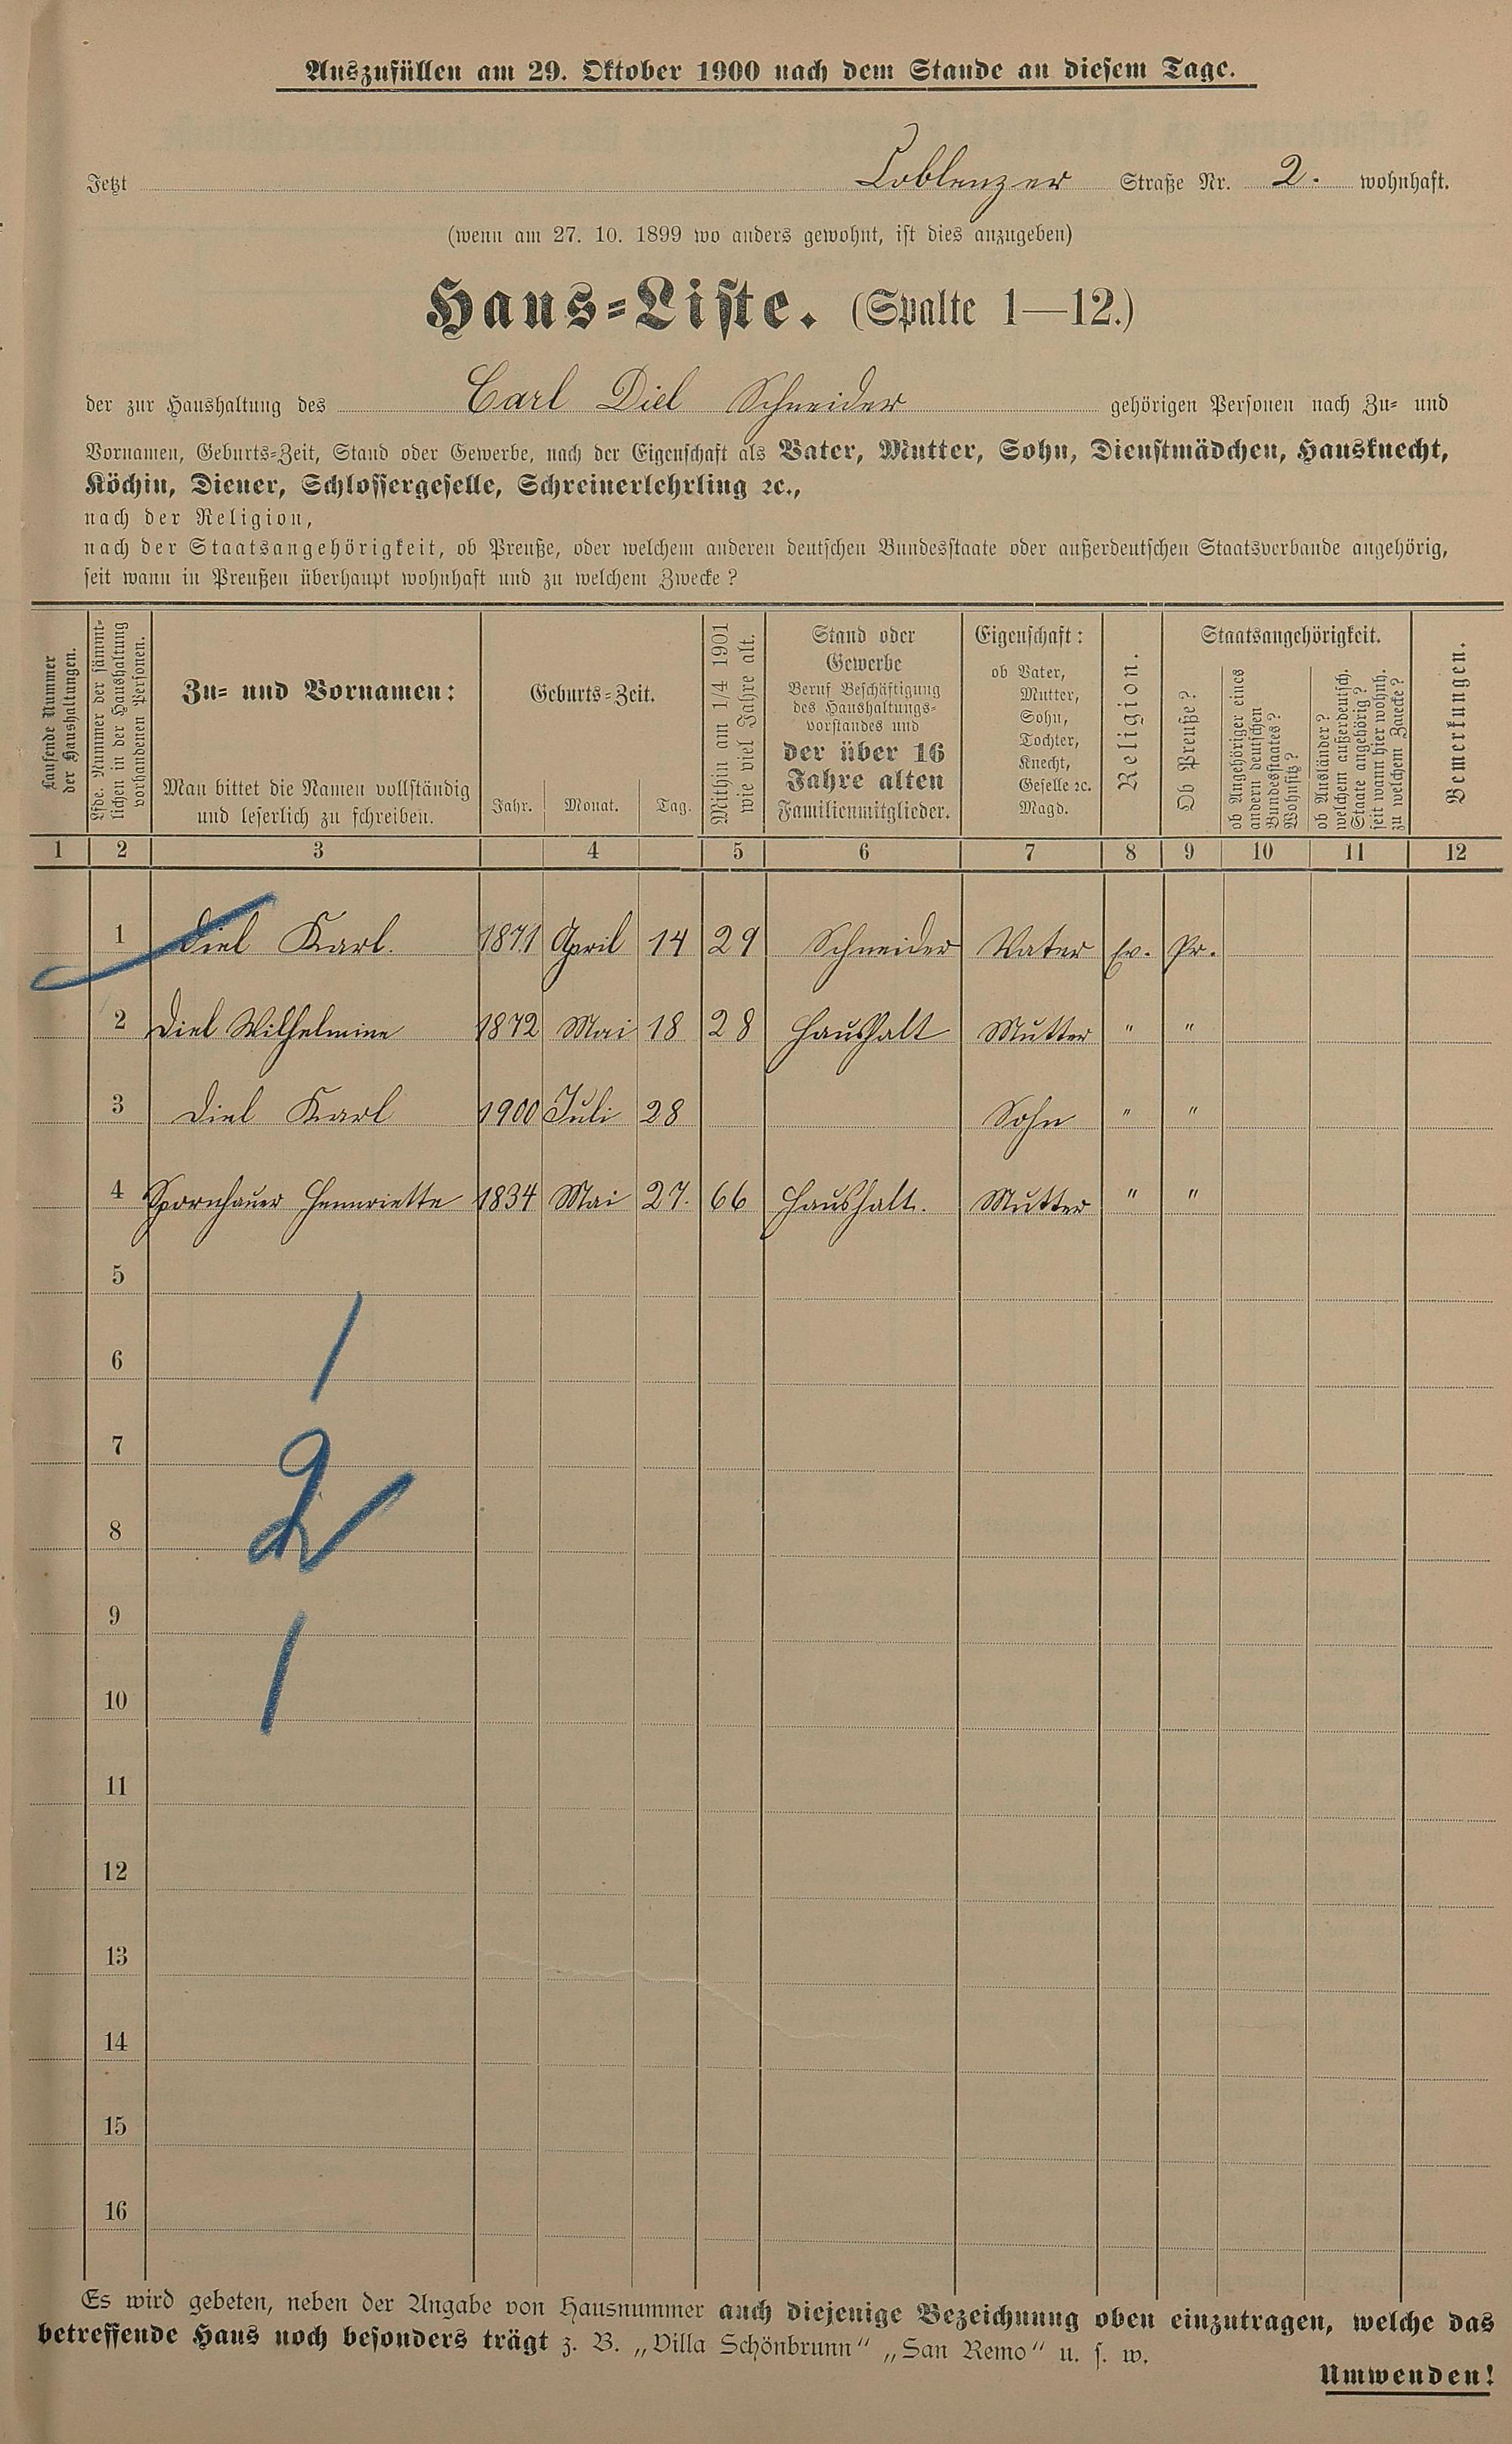 Auszufüllen am 29. Oktober 1900 nach dem Stande an diesem Tage.
Jetzt Coblenzer Straße Nr. 2. wohnhaft.
(wenn am 27. 10. 1899 wo anders gewohnt, ist dies anzugeben)
Haus-Liste. (Spalte 1—12.)
der zur Haushaltung des Carl Diel Schneider gehörigen Personen nach Zu- und
Vornamen, Geburts-Zeit, Stand oder Gewerbe, nach der Eigenschaft als Vater, Mutter, Sohn, Dienstmädchen, Hausknecht,
Köchin, Diener, Schlossergeselle, Schreinerlehrling ꝛc.,
nach der Religion,
nach der Staatsangehörigkeit, ob Preuße, oder welchem anderen deutschen Bundesstaate oder außerdeutschen Staatsverbande angehörig,
seit wann in Preußen überhaupt wohnhaft und zu welchem Zwecke?
Laufende Nummer
der Haushaltungen.
Lfde. Nummer der sämmt-
lichen in der Haushaltung
vorhandenen Personen.
Zu- und Vornamen:
Man bittet die Namen vollständig
und leserlich zu schreiben.
Geburts-Zeit.
Jahr. Monat. Tag.
Mithin am 1/4 1901
wie viel Jahre alt.
Stand oder
Gewerbe
Beruf Beschäftigung
des Haushaltungs-
vorstandes und
der über 16
Jahre alten
Familienmitglieder.
Eigenschaft:
ob Vater,
Mutter,
Sohn,
Tochter,
Knecht,
Geselle ꝛc.
Magd.
Religion.
Staatsangehörigkeit.
Ob Preuße?
ob Angehöriger eines
andern deutschen
Bundesstaates?
Wohnsitz?
ob Ausländer?
welchem außerdeutsch.
Staate angehörig?
seit wann hier wohnh.
zu welchem Zwecke?
Bemerkungen.
1 2 3 4 5 6 7 8 9 10 11 12
1 Diel Karl. 1871 April 14 29 Schneider Vater Ev. Pr.
2 Diel Wilhelmine 1872 Mai 18 28 Haushalt Mutter " "
3 Diel Karl 1900 Juli 28 Sohn " "
4 Spornhauer Hennriette 1834 Mai 27. 66 Haushalt. Mutter " "
5
6 1
7
8 2
9
10 1
11
12
13
14
15
16
Es wird gebeten, neben der Angabe von Hausnummer auch diejenige Bezeichnung oben einzutragen, welche das
betreffende Haus noch besonders trägt z. B. „Villa Schönbrunn" „San Remo" u. s. w.
Umwenden!